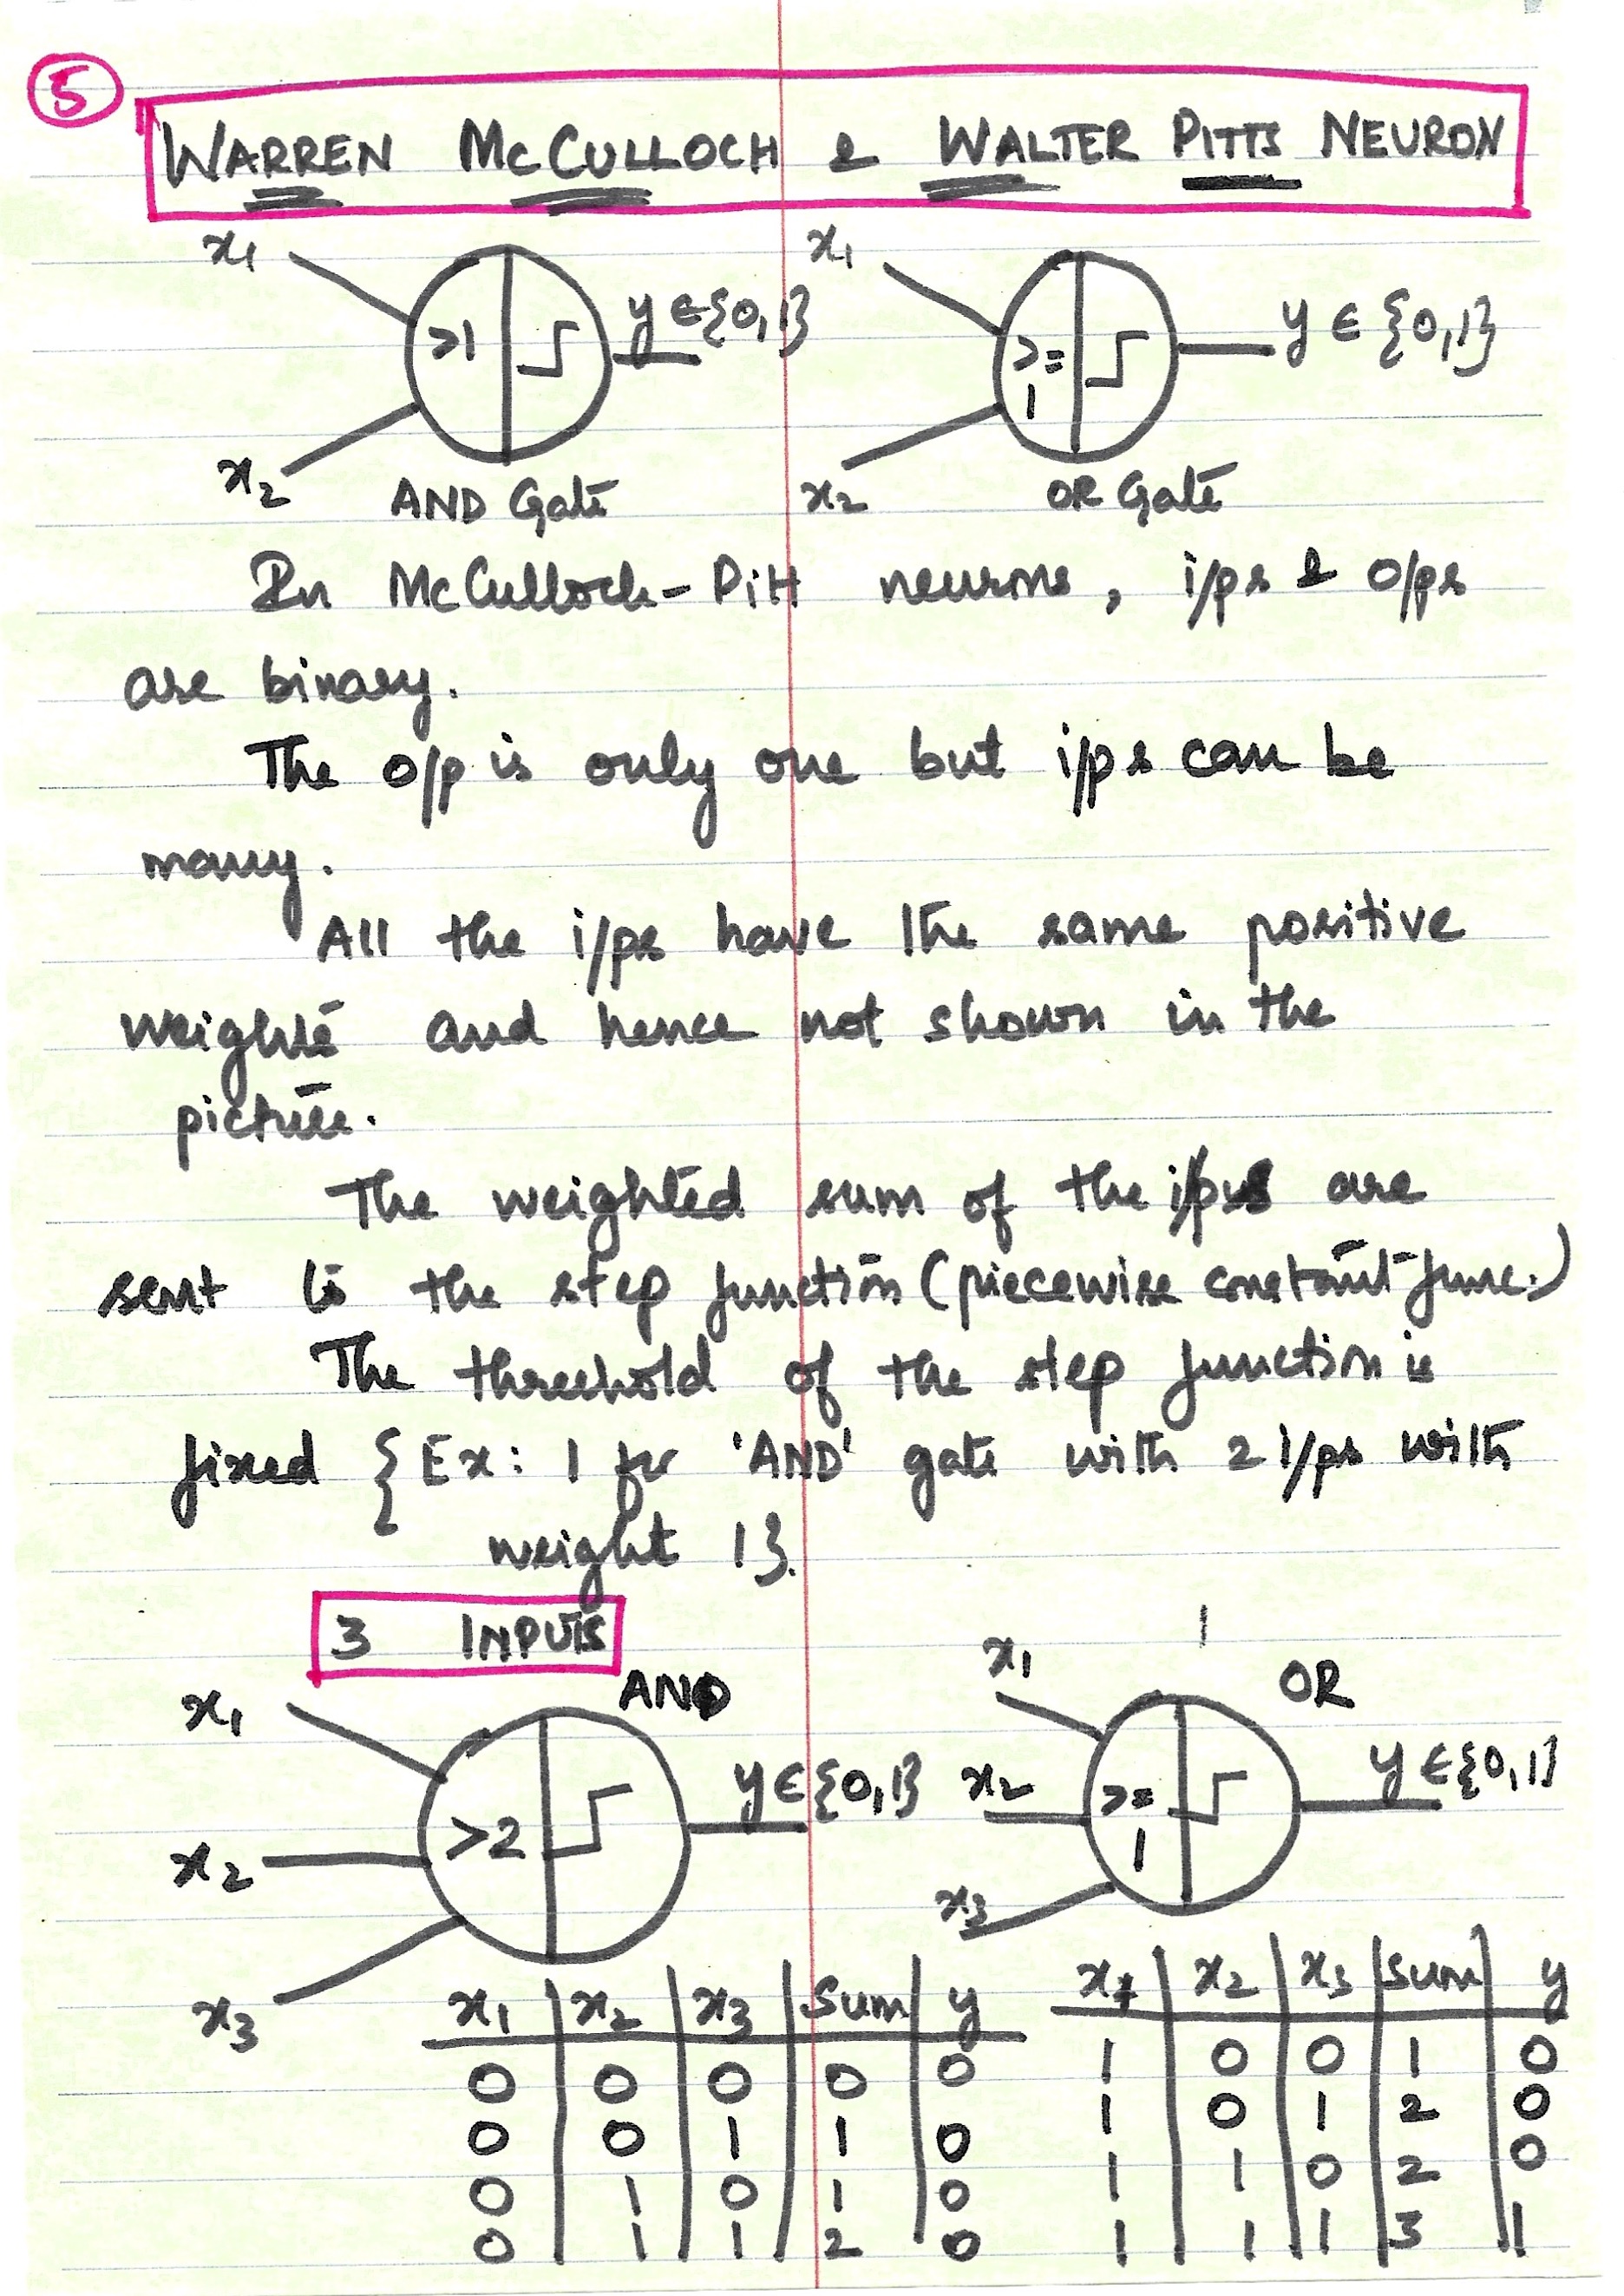 5
WARREN McCULLOCH & WALTER PITTS NEURON
x1 x1
>1 y ∈ {0,1} >= 1 y ∈ {0,1}
x2 AND Gate x2 OR Gate
In McCulloch-Pitt neurons, i/ps & o/ps
are binary.
The o/p is only one but i/ps can be
many.
All the i/ps have the same positive
weights and hence not shown in the
picture.
The weighted sum of the i/ps are
sent to the step function (piecewise constant func.)
The threshold of the step function is
fixed {Ex: 1 for 'AND' gate with 2 i/ps with
weight 1}.
3 INPUTS
AND OR
x1 x1
>2 y ∈ {0,1} x2 >= 1 y ∈ {0,1}
x2
x3 x3
x1 | x2 | x3 | Sum | y
0 | 0 | 0 | 0 | 0
0 | 0 | 1 | 1 | 0
0 | 1 | 0 | 1 | 0
0 | 1 | 1 | 2 | 0
x1 | x2 | x3 | Sum | y
1 | 0 | 0 | 1 | 0
1 | 0 | 1 | 2 | 0
1 | 1 | 0 | 2 | 0
1 | 1 | 1 | 3 | 1